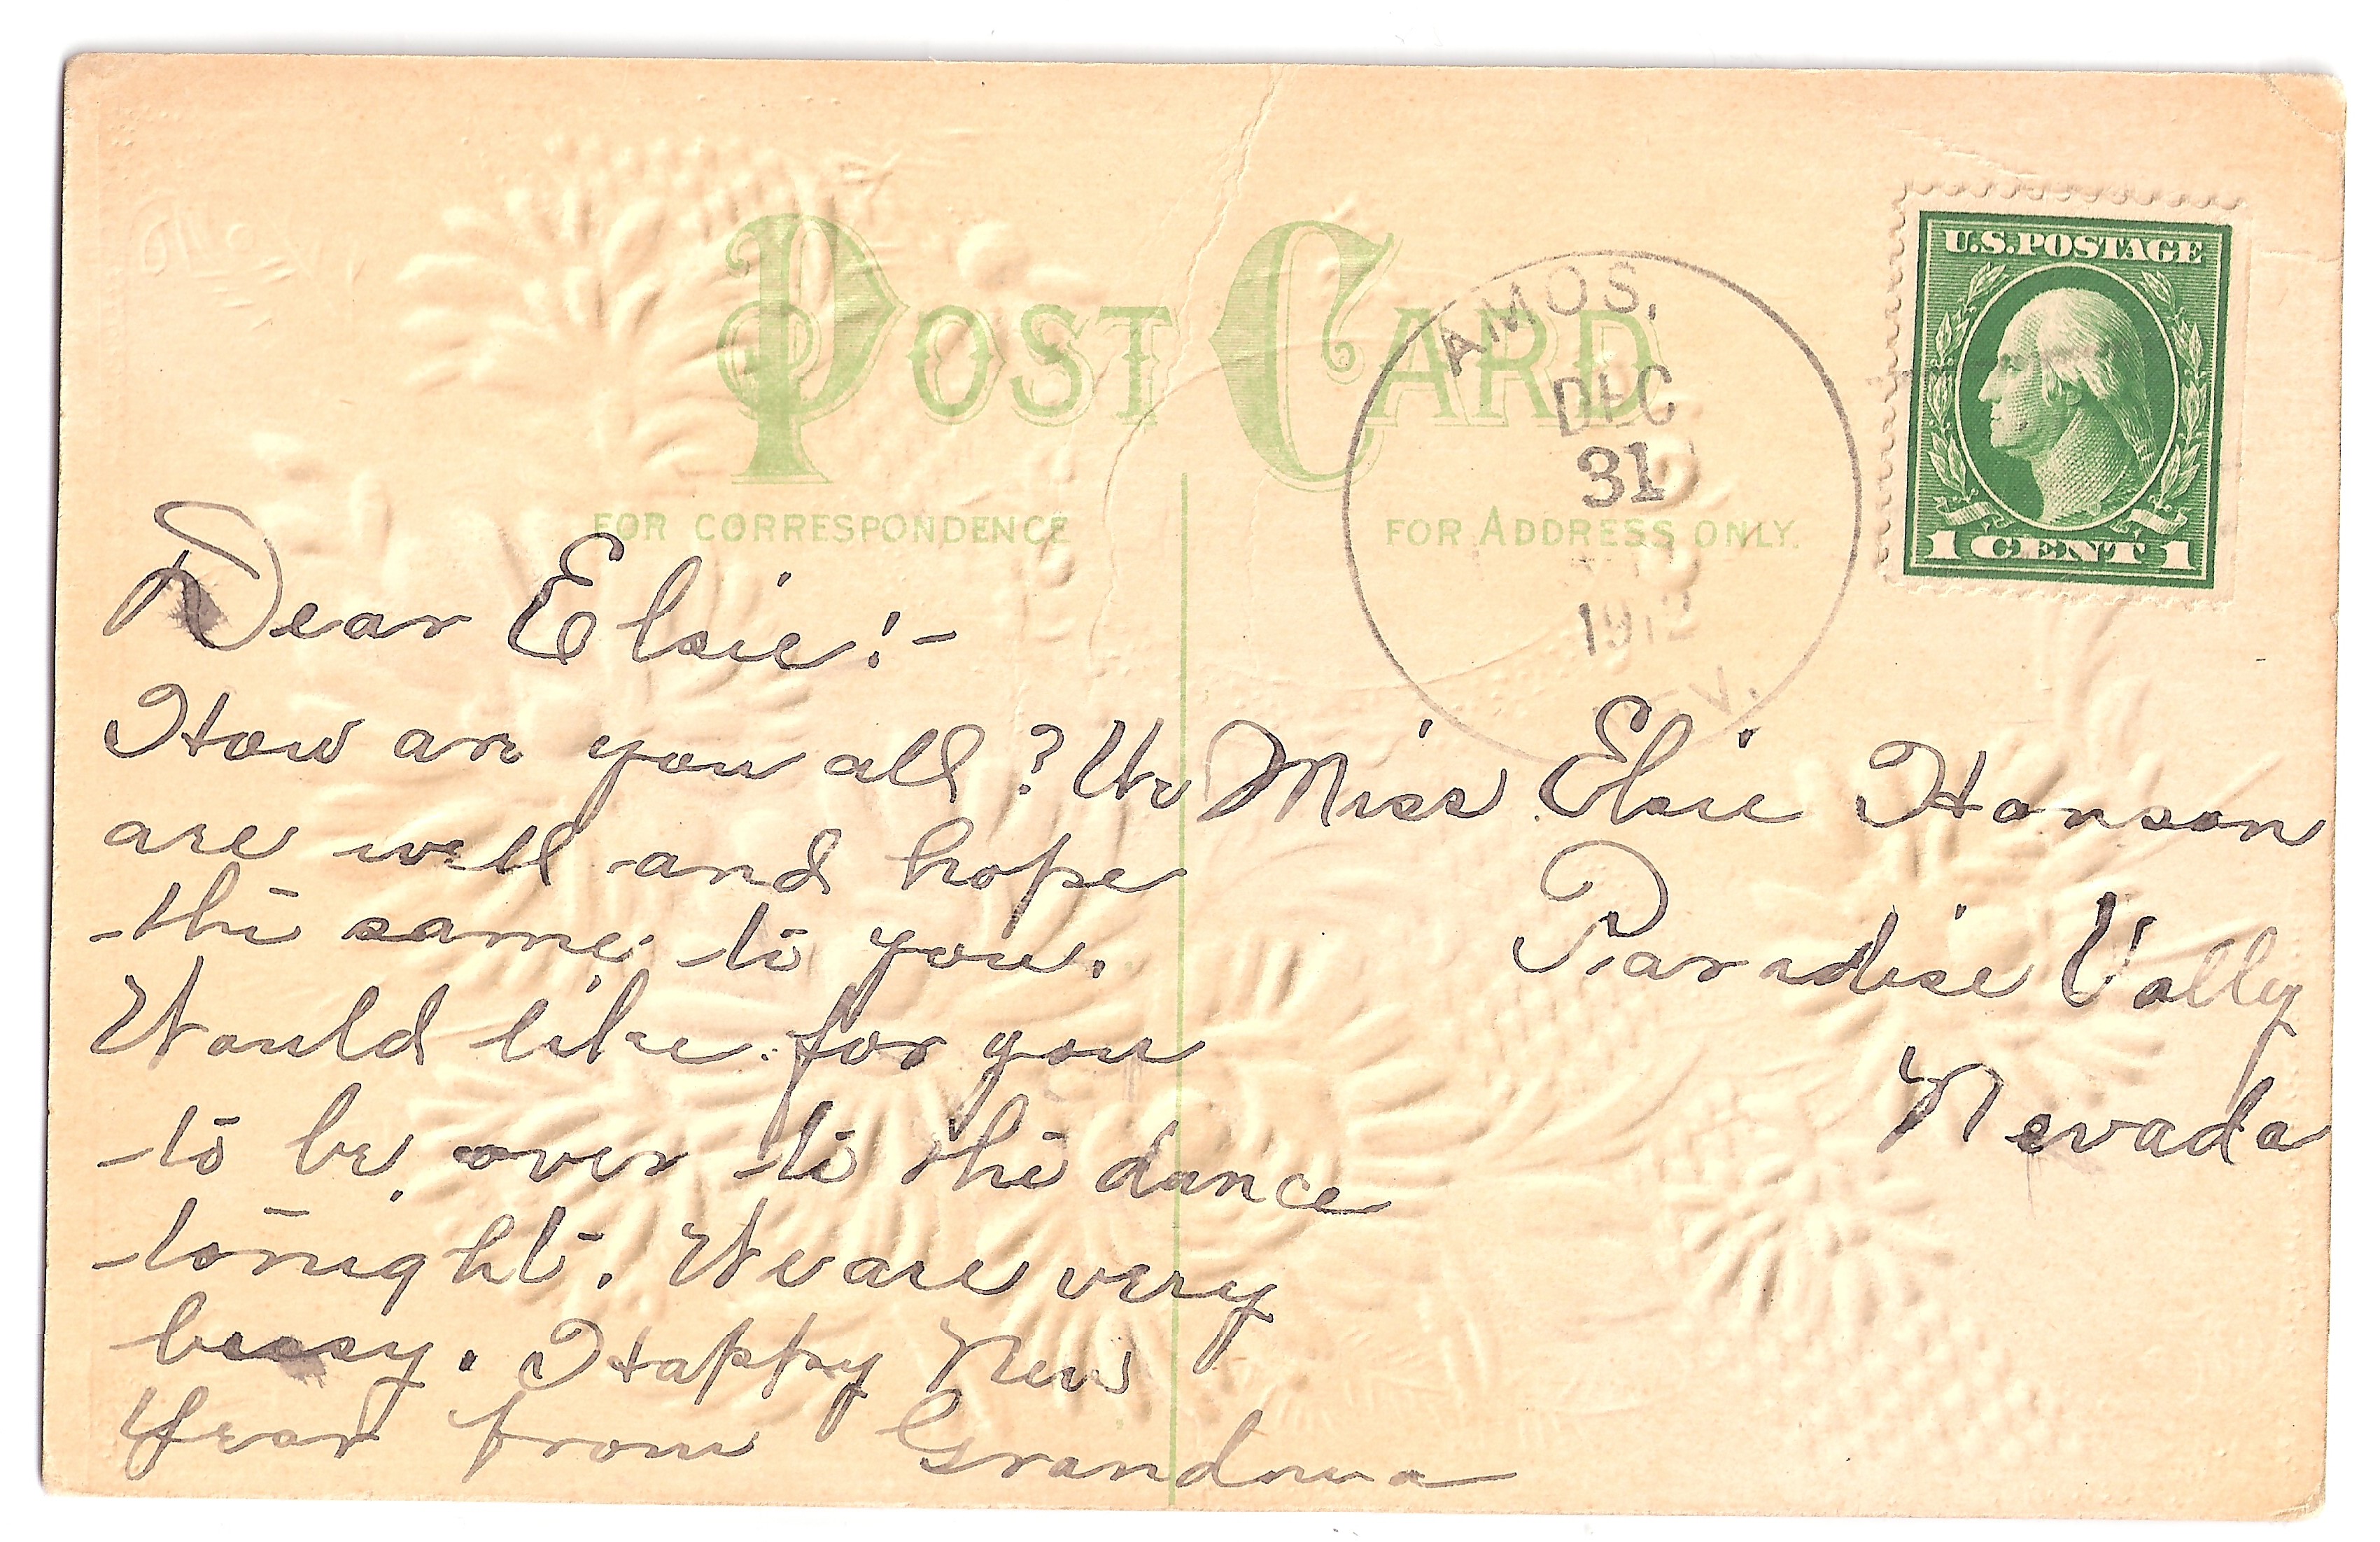 POST CARD
FOR CORRESPONDENCE
FOR ADDRESS ONLY.
AMOS,
DEC
31
1912
V.
U.S. POSTAGE
1 CENT 1
Dear Elsie:-
How are you all? We
are well and hope
the same to you.
Would like for you
to be over to the dance
tonight. We are very
bussy. Happy New
Year from Grandma
Miss Elsie Hanson
Paradise Vally
Nevada